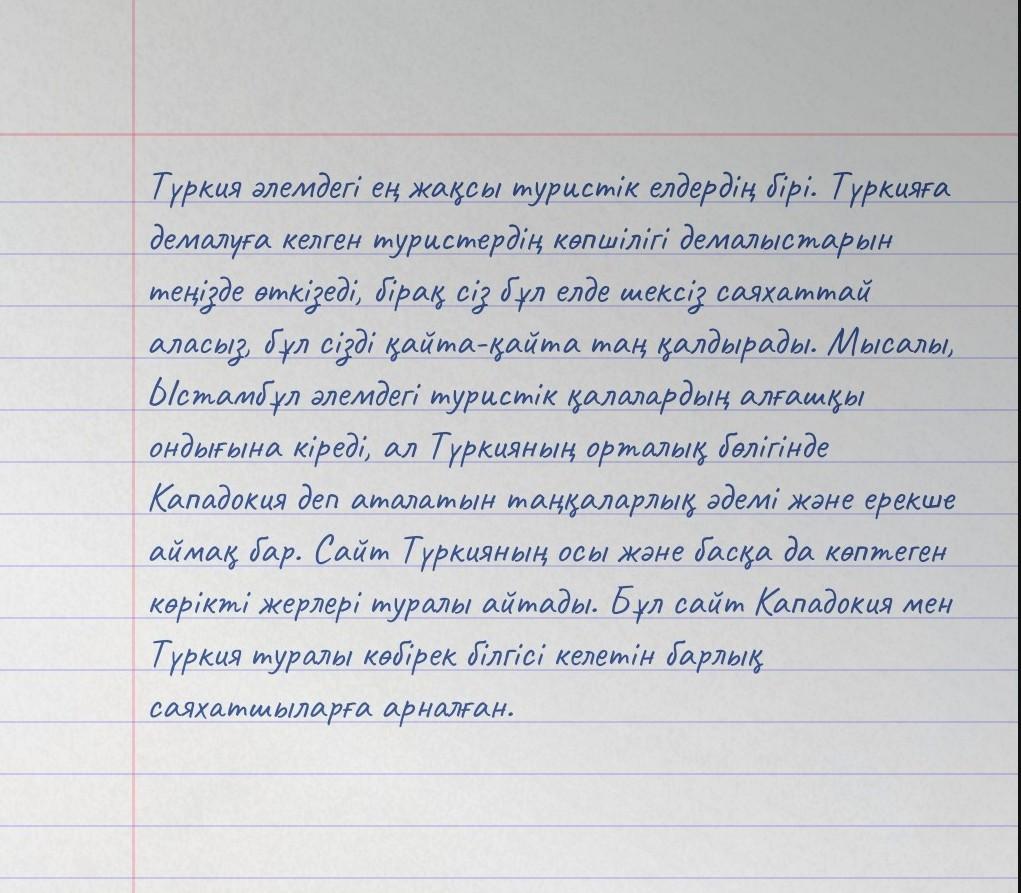 Түркия әлемдегі ең жақсы туристік елдердің бірі. Түркияға
демалуға келген туристердің көпшілігі демалыстарын
теңізде өткізеді, бірақ сіз бұл елде шексіз саяхаттай
аласыз, бұл сізді қайта-қайта таң қалдырады. Мысалы,
Ыстамбұл әлемдегі туристік қалалардың алғашқы
ондығына кіреді, ал Түркияның орталық бөлігінде
Кападокия деп аталатын таңқаларлық әдемі және ерекше
аймақ бар. Сайт Түркияның осы және басқа да көптеген
көрікті жерлері туралы айтады. Бұл сайт Кападокия мен
Түркия туралы көбірек білгісі келетін барлық
саяхатшыларға арналған.